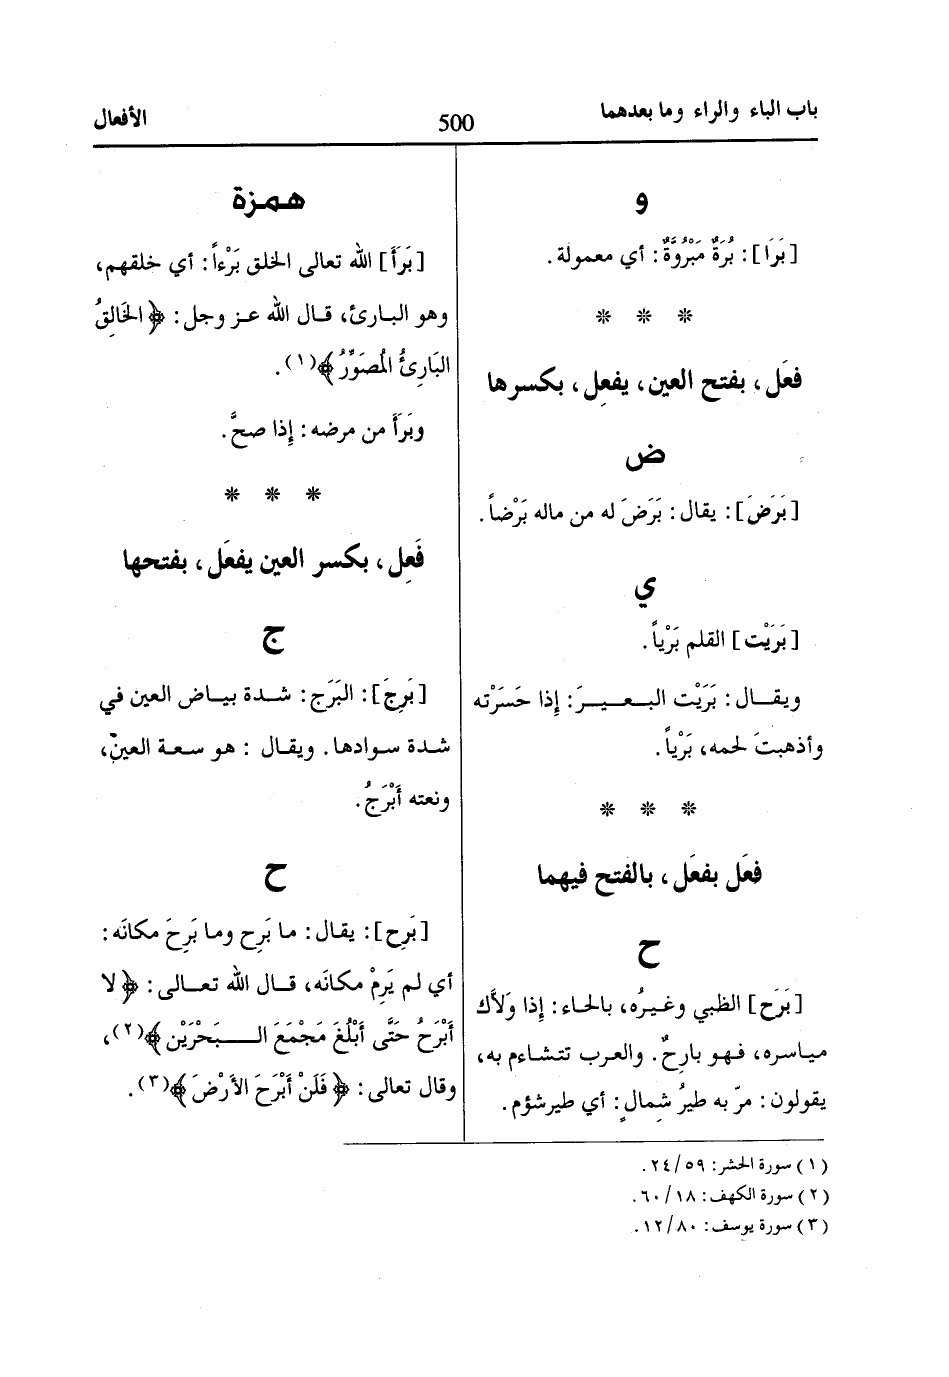 باب الباء والراء وما بعدهما
500
الأفعال
و
[بَرَا]: بُرَةٌ مَبْرُوَّةٌ: أي معمولة.
* * *
فعَل، بفتح العين، يفعِل، بكسرها
ض
[بَرَضَ]: يقال: بَرَضَ له من ماله بَرْضاً.
ي
[بَرَيْت] القلم بَرْياً.
ويقال: بَرَيْت البعيرَ: إذا حَسَرْته
وأذهبتَ لحمه، بَرْياً.
* * *
فعَل بفعَل، بالفتح فيهما
ح
[بَرَح] الظبي وغيرُه، بالحاء: إذا وَلاَّك
مياسره، فهو بارِحٌ. والعرب تتشاءم به،
يقولون: مرّ به طيرُ شمالٍ: أي طيرشؤم.
همزة
[بَرَأَ] الله تعالى الخلق بَرْءاً: أي خلقهم،
وهو البارئ، قال الله عز وجل: ﴿الخَالِقُ
البَارِئُ المُصَوِّرُ﴾(١).
وبَرَأَ من مرضه: إذا صحَّ.
* * *
فَعِل، بكسر العين يفعَل، بفتحها
ج
[بَرِجَ]: البَرَج: شدة بياض العين في
شدة سوادها. ويقال: هو سعة العين،
ونعته أَبْرَجُ.
ح
[بَرِح]: يقال: ما بَرِح وما بَرِحَ مكانَه:
أي لم يَرِمْ مكانَه، قال الله تعالى: ﴿لا
أَبْرَحُ حَتَّى أَبْلُغَ مَجْمَعَ البَحْرَيْن﴾(٢)،
وقال تعالى: ﴿فَلَنْ أَبْرَحَ الأَرْضَ﴾(٣).
(١) سورة الحشر: ٢٤/٥٩.
(٢) سورة الكهف: ٦٠/١٨.
(٣) سورة يوسف: ١٢/٨٠.